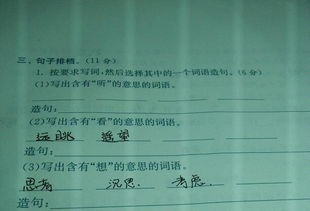 三、句子排档。(11分)
1. 按要求写词,然后选择其中的一个词语造句。(6分)
(1)写出含有“听”的意思的词语。
造句:
(2)写出含有“看”的意思的词语。
远眺 遥望
造句:
(3)写出含有“想”的意思的词语。
思考 沉思. 考虑.
造句: